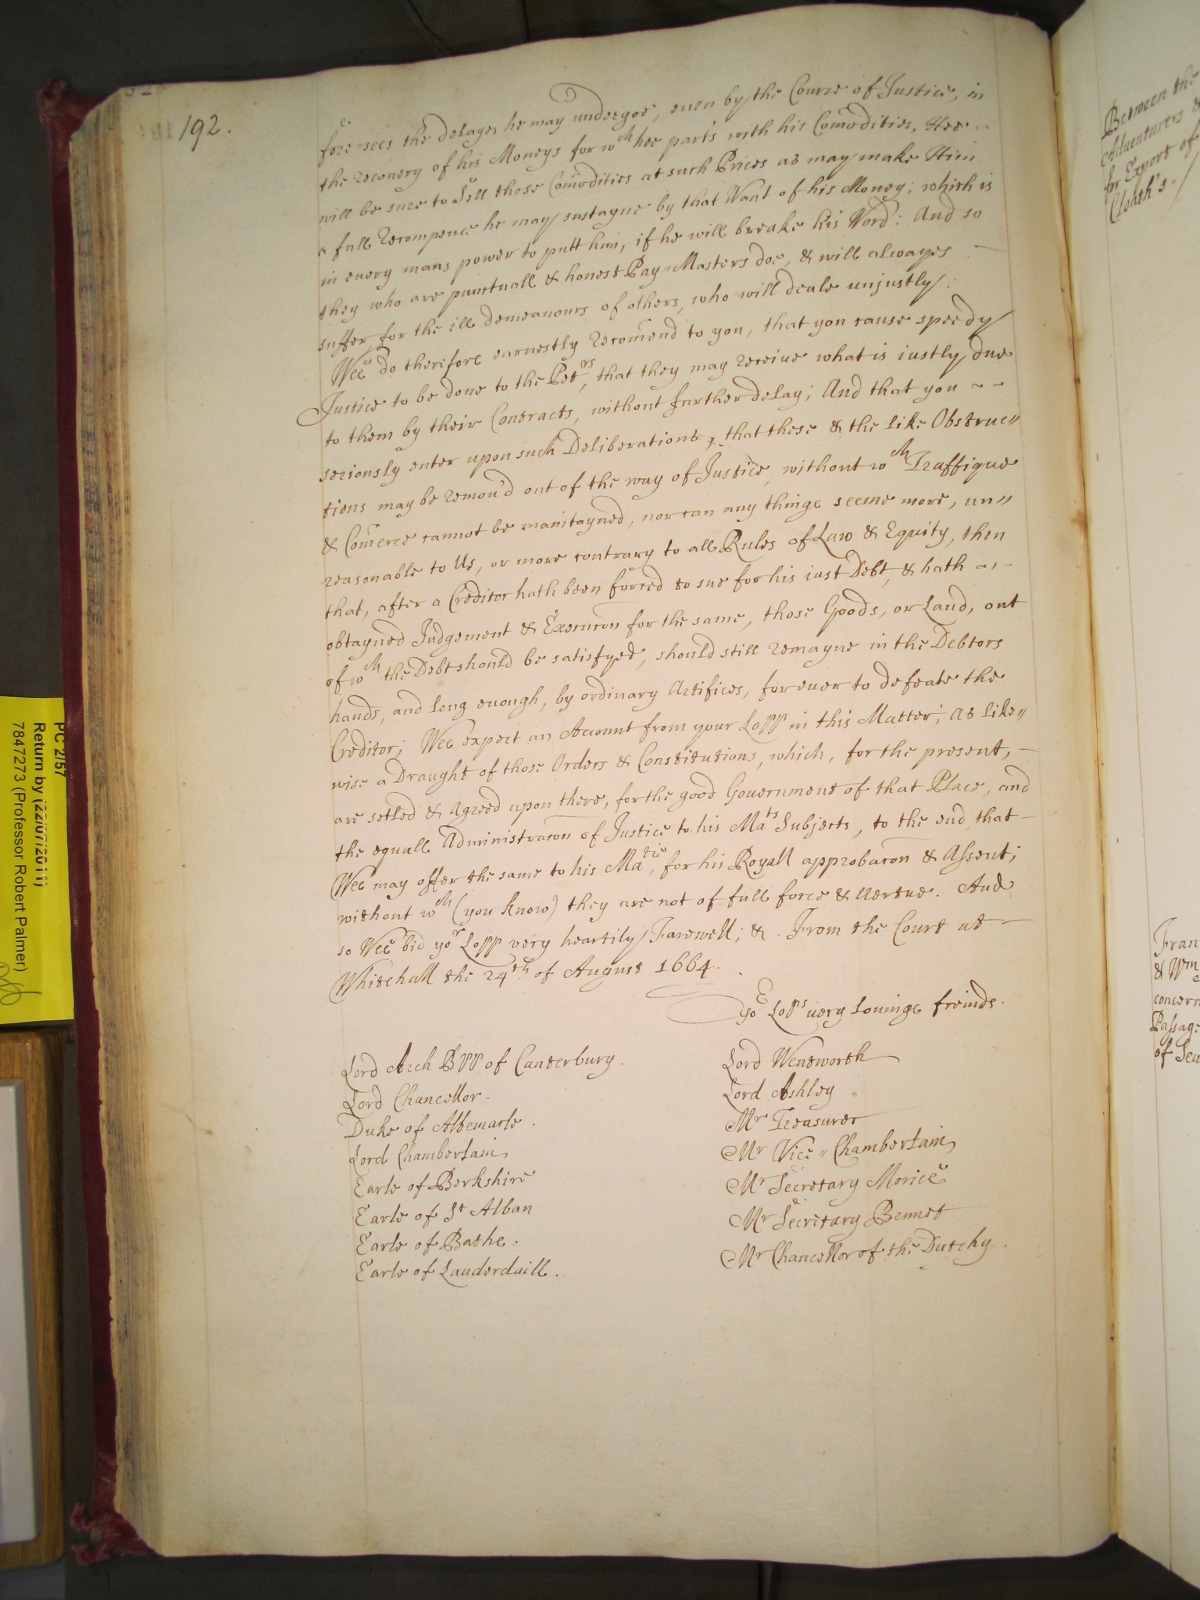 192.
fore-sees the delayes he may undergoe, even by the Course of Justice, in
the recovery of his Moneys for wch hee part's with his Com̄odities, Hee
will be sure to Sell those Com̄odities at such Prices as may make Him
a full Recompence he may sustayne by that Want of his Money; which is
in every mans power to putt him, if he will breake his Word: And so
they who are punctuall & honest Pay-Masters doe, & will alwayes
suffer for the ill demeanours of others, who will deale unjustly.
Wee do therefore earnestly Recom̄end to you, that you cause speedy
Justice to be done to the Petrs, that they may receive what is iustly due
to them by their Contracts, without further delay; And that you ~ ~
seriously enter upon such Deliberations, that these & the like Obstruc=
tions may be remov'd out of the way of Justice, without wch Traffique
& Com̄erce cannot be maintayned, nor can any thinge seeme more, un=
reasonable to Us, or more contrary to all Rules of Law & Equity, then
that, after a Creditor hath been forced to sue for his iust Debt, & hath ~ ~
obtayned Judgement & Execucōn for the same, those Goods, or Land, out
of wch the Debt should be satisfyed, should still remayne in the Debtors
hands, and long enough, by ordinary Artifices, for ever to defeate the
Creditor; Wee expect an Account from your Lopp in this Matter; as like=
wise a Draught of those Orders & Constitutions, which, for the present, ~
are setled & Agreed upon there, for the good Government of that Place, and
the equall Administracōn of Justice to his Mats Subjects, to the end that ~
Wee may offer the same to his Matie, for his Royall approbacōn & Assent;
without wch (you know) they are not of full force & vertue. And
so Wee bid yor Lopp very heartily Farewell; &. From the Court at ~
Whitehall the 24th of August 1664.
Yor Lopps very lovinge freinds.
Lord Arch Bpp of Canterbury.
Lord Chancellor.
Duke of Albemarle.
Lord Chamberlain,
Earle of Berkshire
Earle of St Alban
Earle of Bathe.
Earle of Lauderdaill.
Lord Wentworth
Lord Ashley
Mr Treasurer
Mr Vice-Chamberlain,
Mr Secretary Morice
Mr Secretary Bennet
Mr Chancellor of the Dutchy.
Between the
Adventurers &
for Export of
Cloath's.
Fran
& Wm
concern
Passage
of
PC 2/57
Return by (22/07/2011)
7847273 (Professor Robert Palmer)